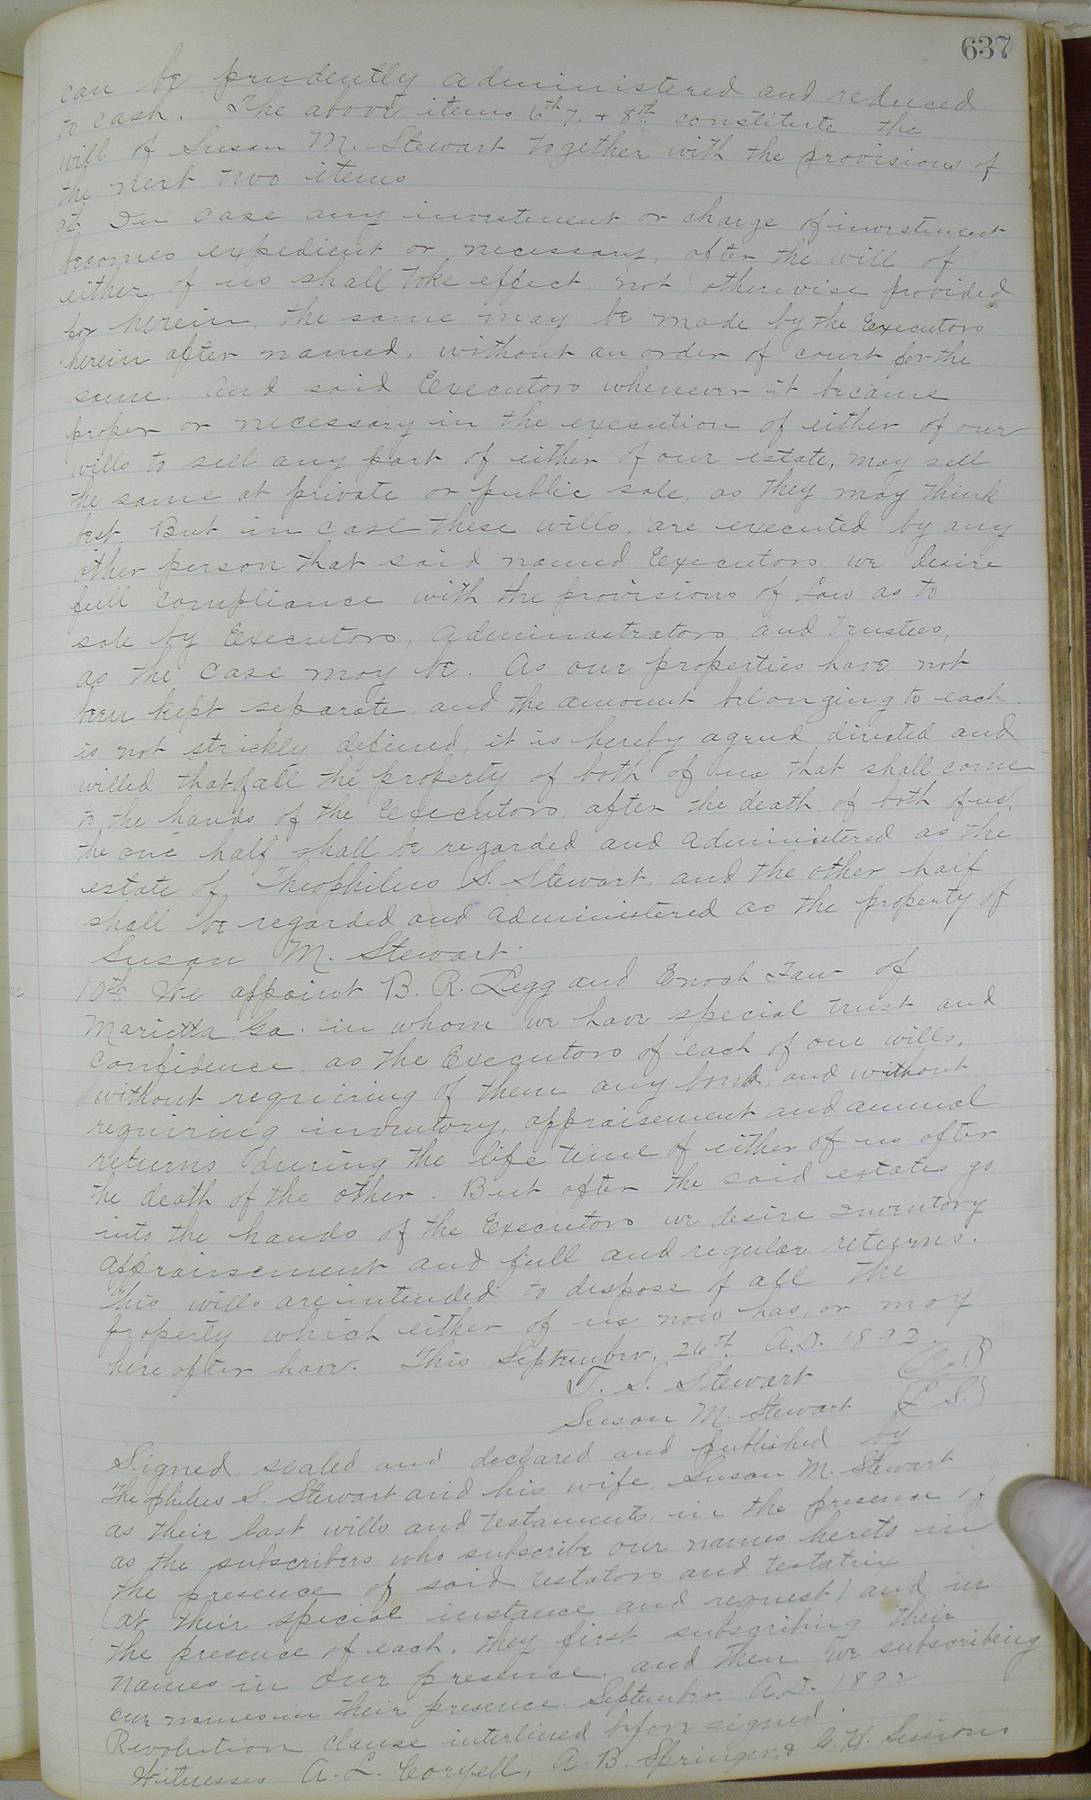 637
can be prudently administered and reduced
to cash. The above items 6th 7. + 8th constitute the
will of Susan M. Stewart together with the provisions of
the next two items
9th In case any investment or charge of investment
becomes expedient or necessary, after the will of
either of us shall take effect, not otherwise provided
for herein, the same may be made by the Executors
herein after named, without an order of court for the
same. And said Executors whenever it became
proper or necessary in the execution of either of our
wills to sell any part of either of our estate, may sell
the same at private or public sale, as they may think
best. But in case these wills are executed by any
other person that said named Executors, we desire
full compliance with the provisions of Law as to
sale by Executors, Administrators, and Trustees,
as the case may be. As our properties have not
been kept separate and the amount belonging to each
is not strickly defined, it is hereby agreed, directed and
willed that all the property of both of us that shall come
to the hands of the Executors, after the death of both of us,
the one half shall be regarded and administered as the
estate of Theophilus S. Stewart, and the other half
shall be regarded and administered as the property of
Susan M. Stewart.
10th We appoint B. R. Legg and Enoch Faw of
Marietta Ga. in whom we have special trust and
confidence, as the Executors of each of our wills,
without requiring of them any bond, and without
requiring inventory, appraisement and annual
returns during the life time of either of us after
the death of the other. But after the said estates go
into the hands of the Executors we desire inventory
appraisement and full and regular returns.
This wills are intended to dispose of all the
property which either of us now has, or may
here after have. This September, 26th A.D. 1892.
T. S. Stewart (L.S.)
Susan M. Stewart (L.S.)
Signed sealed and declared and published by
Theophilus S. Stewart and his wife Susan M. Stewart
as their last wills and testaments, in the presence of
as the subscribers who subscribe our names hereto in
the presence of said testators and testatrix
(at their special instance and request) and in
the presence of each, they first subscribing their
names in our presence, and then we subscribing
our names in their presence. September, A.D. 1892
Revolution clause interlined before signed.
Witnesses A. L. Coryell, A. B. Springer, & G. H. Sessions